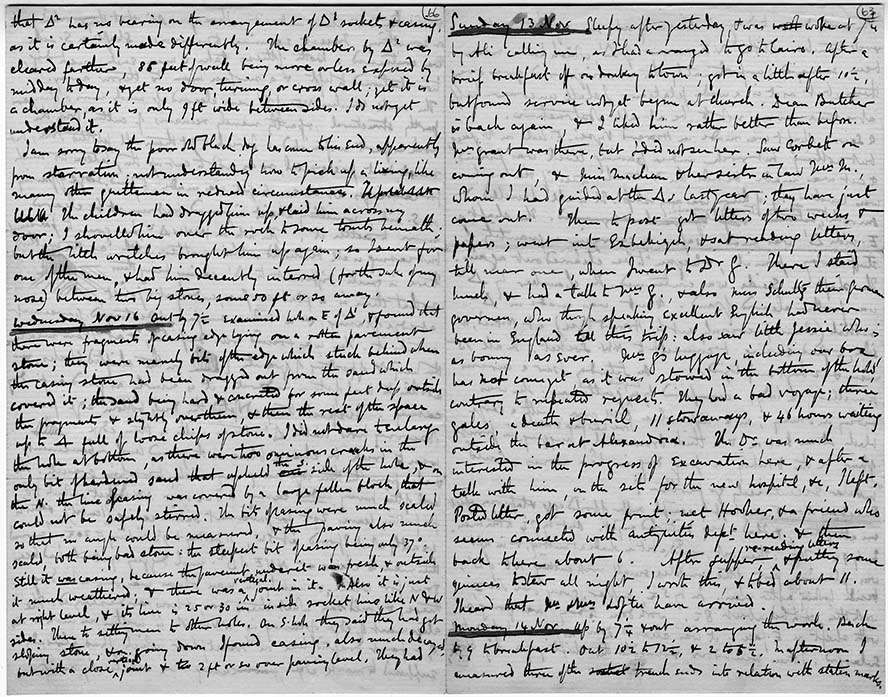 66
that Δ² has no bearing on the arrangement of Δ¹ sockets & casing,
as it is certainly made differently. The chamber by Δ² was
cleared further, 86 feet of wall being more or less exposed by
midday today, & yet no door, turning, or cross wall; yet it is
a chamber as it is only 9 ft wide between sides. I do not yet
understand it.
I am sorry to say the poor old black dog has come to his end, apparently
from starvation; not understanding how to pick up a living, like
many other gentlemen in reduced circumstances.
The children had dragged him up & laid him across my
door; I shovelled him over the rock to some tombs beneath;
but the little wretches brought him up again; so I sent for
one of the men, & had him decently interred (for the sake of my
nose) between two big stones, some 50 ft or so away.
Wednesday Nov 16 Out by 7½ examined hole E of Δ¹, & found that
there were fragments of casing edge lying on a rotten pavement
stone; they were merely bits of the edge which stuck behind when
the casing stone had been dragged out from the sand which
covered it; the sand being hard & for some feet deep outside
the fragments & slightly over them, & then the rest of the space
up to Δ full of loose chips of stone. I did not dare to enlarge
the hole at bottom, as there were two ominous cracks in the
only bit of hardened sand that upheld the S. side of the hole, & on
the N. the line of casing was covered by a large fallen block that
could not be safely stirred. The bits of casing were much scaled
so that no angle could be measured, & the paving also much
scaled, both being bad stone: the steepest bit of casing being only 37°.
Still it was casing, because the pavement under it was fresh & outside
it much weathered, & there was a vertical joint in it. Also it is just
at right level, & its line is 25 or 30 in. inside socket line, like N & W
sides. Then to setting men to other holes. On S. hole they said they had got
sloping stone, & on going down I found casing, also much decayed
but with a close vertical joint & 2 ft or so over paving level. They had
63
Sunday 13 Nov Sleepy after yesterday, & was woke at 7½
by Ali calling me, as I had arranged to go to Cairo. After a
brief breakfast off on donkey to town; got in a little after 10½,
but found service not yet begun at church. Dean Butcher
is back again, & I liked him rather better than before.
Mrs Grant was there, but I did not see her. Saw Corbett on
coming out, & Miss Maclean & her sister in law Mrs M.,
whom I had guided at the Δs last year; they have just
come out. Then to post got letters of two weeks &
papers; went into Ezbekiyeh, & sat reading letters,
till near one, when I went to Dr G. There I staid
lunch, & had a talk to Mrs G., & also Miss Schultz their German
governess, who though speaking excellent English had never
been in England till this trip: also saw little Jessie who is
as bonny as ever. Mrs G's luggage, including our box
has not come yet as it was stowed in the bottom of the hold,
contrary to repeated requests. They had a bad voyage; three
gales, a death & burial, 11 stowaways, & 46 hours waiting
outside the bar at Alexandria. The Dr was much
interested in the progress of Excavation here, & after a
talk with him, on the site for the new hospital, &c, I left,
Posted letter, got some print; met Hooker, & a friend who
seems connected with antiquities dept here; & then
back to here about 6. After supper, re-reading letters & putting some
quinces to stew all night I wrote this, & to bed about 11.
I heard that Mr & Mrs Loftie have arrived.
Monday 14 Nov up by 7½ & out arranging the work. Back
by 9 to breakfast. Out 10½ to 12½, & 2 to 5½. In afternoon I
measured three of the trench ends into relation with station marks.